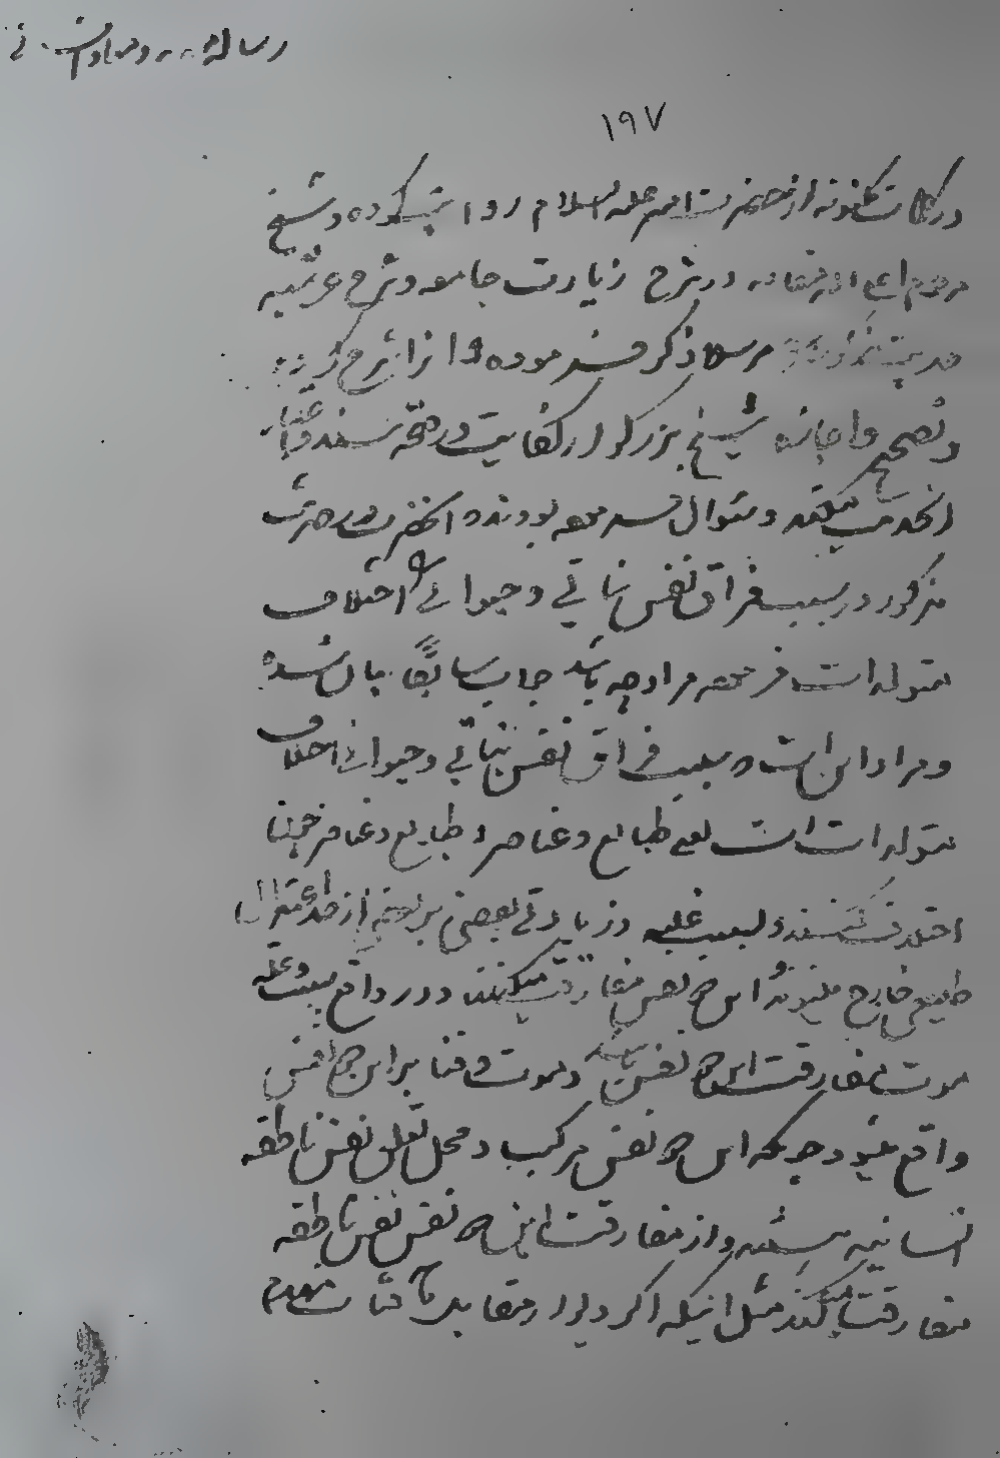 رساله
١٩٧
در کلمات مکنونه از حضرت امیر علیه السلام روایت کرده و شیخ
مرحوم اعلی الله مقامه در شرح زیارت جامعه و شرح عرشیه
مرسلا ذکر فرموده
و تصحیح و اجازه شیخ بزرگوار کفایت در صحة سند
میکند و سئوال فرموده بودند در حدیث
مذکور در سبب فراق نفس نباتی و حیوانی که اختلاف
متولدات فرموده مراد چه باشد جواب سابقا بیان شده
و مراد این است که سبب فراق نفس نباتی و حیوانی اختلاف
متولدات است یعنی طبایع و عناصر و طبایع و عناصر چون
اختلاف کنند و بسبب غلبه و زیادتی بعضی بر بعضی از حد اعتدال
طبیعی خارج میشوند این دو نفس مفارقت میکنند و در واقع سبب و علة
موت مفارقت این دو نفس باشد و موت و فنا بر این دو نفس
واقع میشود چونکه این دو نفس مرکب و محل تعلق نفس ناطقه
انسانیه میباشند و از مفارقت این دو نفس نفس ناطقه
مفارقت میکند مثل اینکه اگر دیوار مقابل آفتاب منهدم